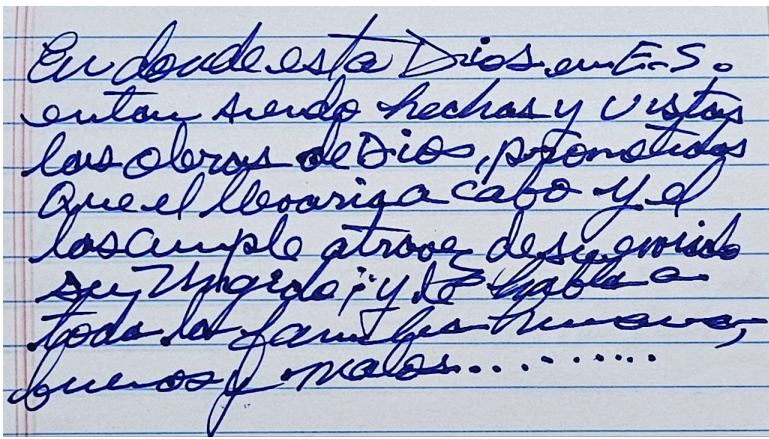 En donde esta Dios en E.S.
entan siendo hechas y vistas
las obras de Dios, prometidas
que el llevariga a cabo y el
las cumple atrove de su enviado
su Ungido; y le habla a
toda la familia humana,
buenos y malos...........